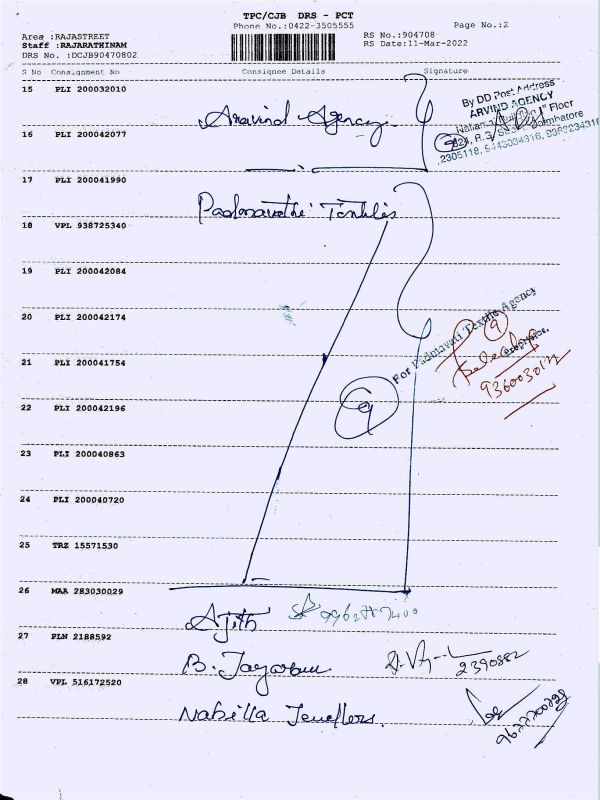 TPC/CJB DRS - PCT
Phone No.:0422-3505555
Page No.:2
Area :RAJASTREET
Staff :RAJARATHINAM
DRS No. :DCJB90470802
RS No.:904708
RS Date:11-Mar-2022
S No Consignment No Consignee Details Signature
15 PLI 200032010
Aravind Agency.
By DD Post Address
ARVIND AGENCY
16 PLI 200042077
17 PLI 200041990
Padmavathi Textiles
18 VPL 938725340
19 PLI 200042084
20 PLI 200042174
For Padmavati Textile Agency
9
21 PLI 200041754
9
22 PLI 200042196
23 PLI 200040863
24 PLI 200040720
25 TRZ 15571530
26 MAA 283030029
Ajith
27 PLN 2188592
B. Jayaram
2390882
28 VPL 516172520
Nabilla Jewellers.